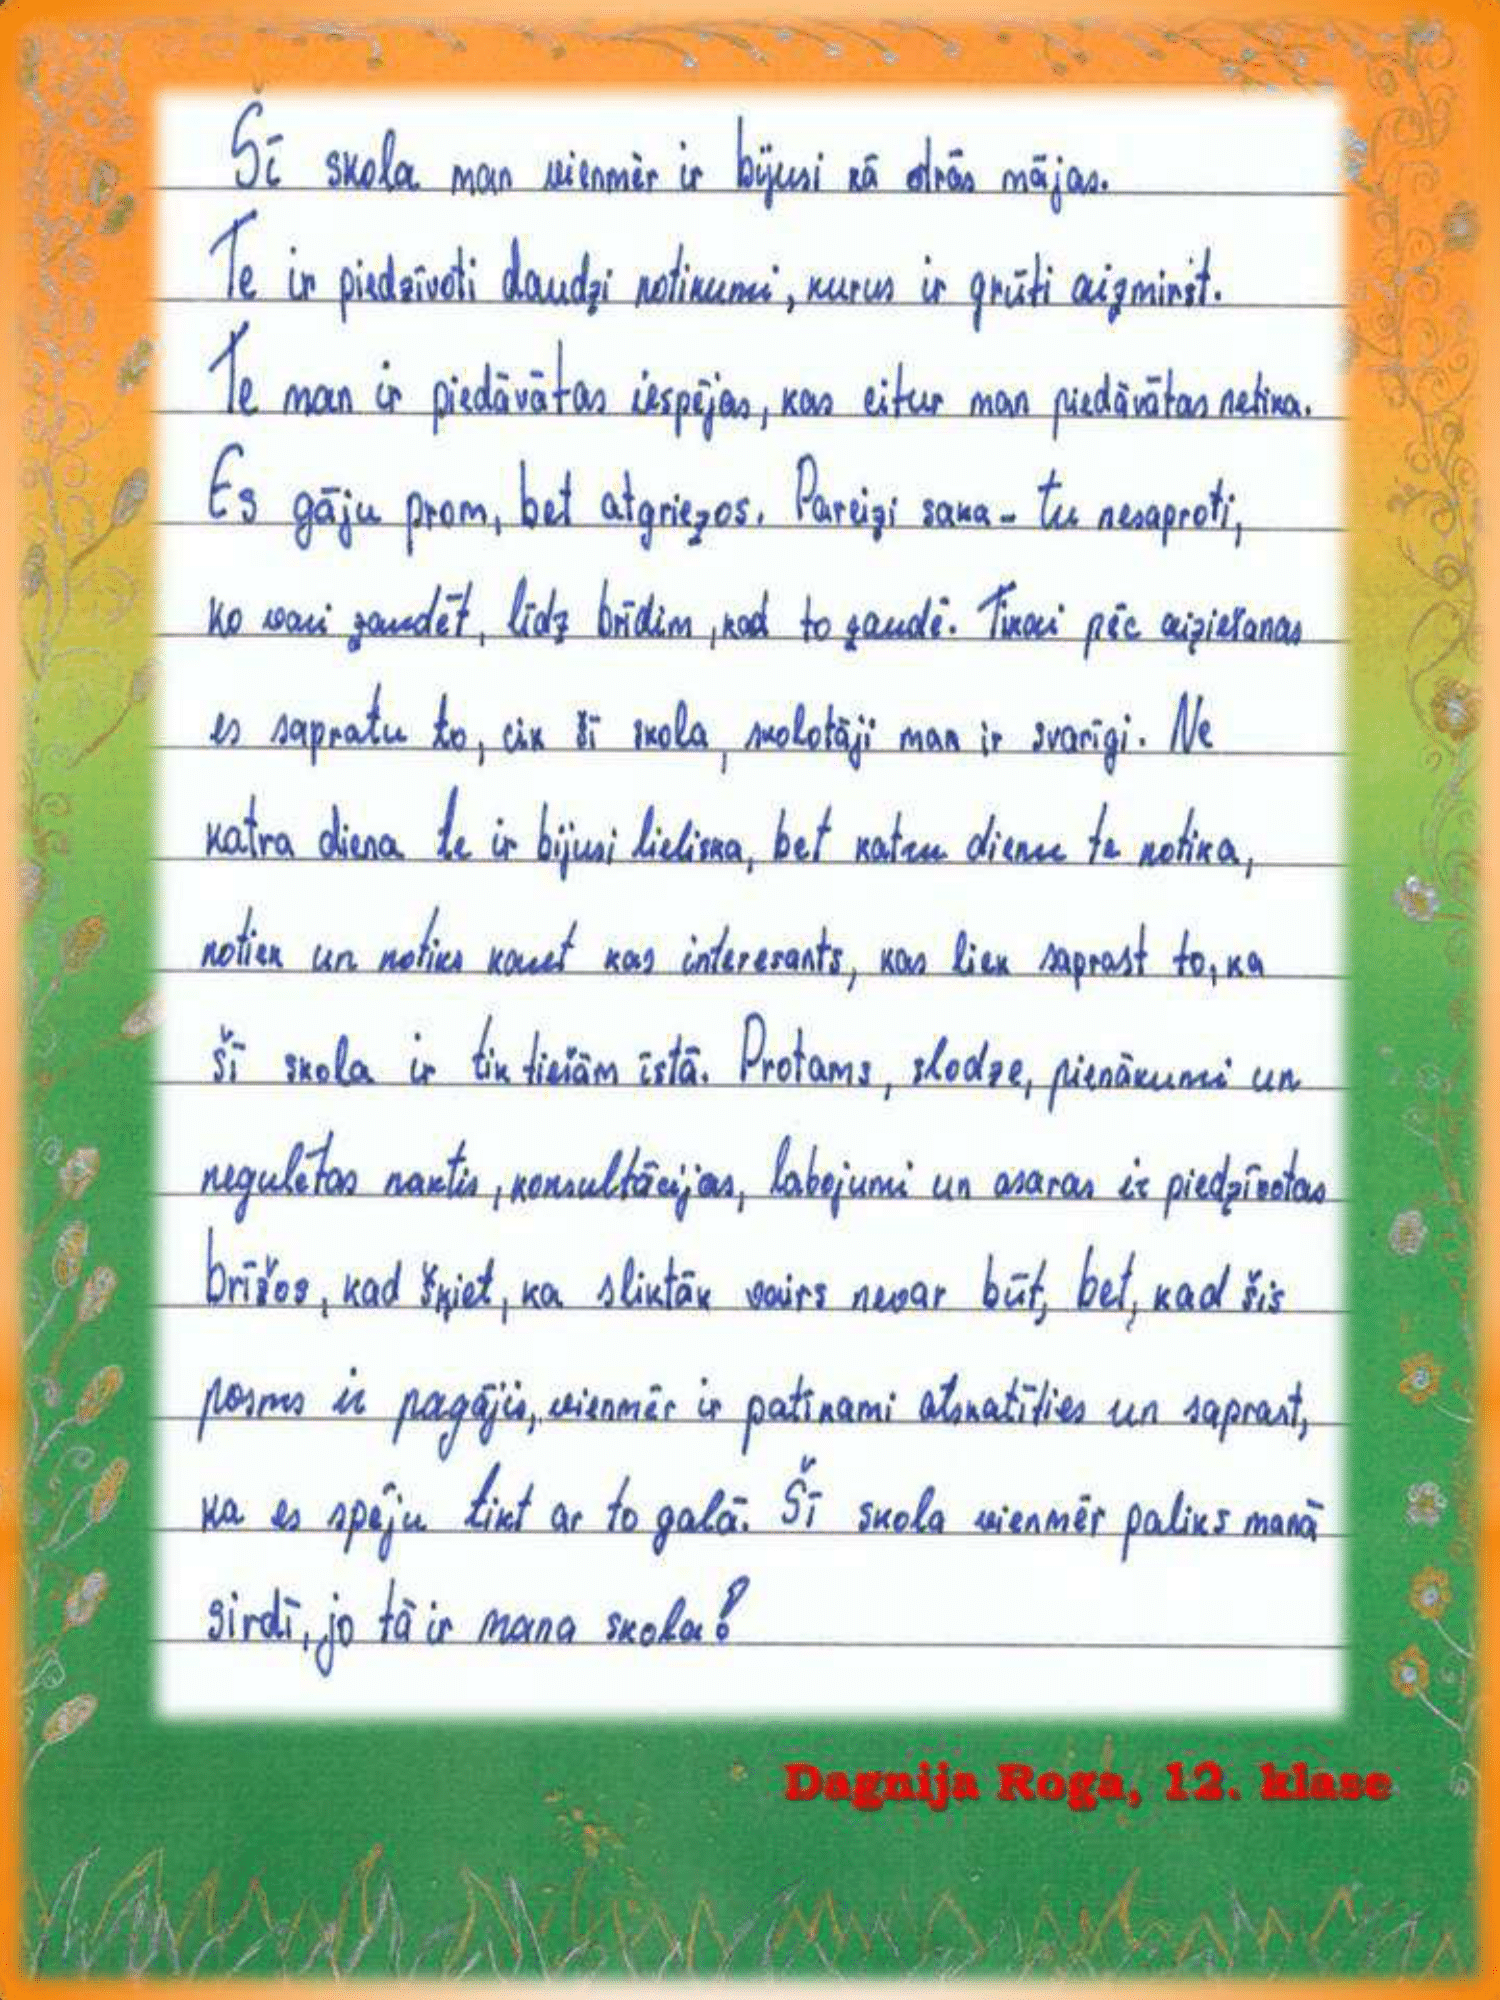 Šī skola man vienmēr ir bijusi kā otrās mājas.
Te ir piedzīvoti daudzi notikumi, kurus ir grūti aizmirst.
Te man ir piedāvātas iespējas, kas citur man piedāvātas netika.
Es gāju prom, bet atgriezos. Pareizi saka - tu nesaproti,
ko vari zaudēt, līdz brīdim, kad to zaudē. Tikai pēc aiziešanas
es sapratu to, cik šī skola, skolotāji man ir svarīgi. Ne
katra diena te ir bijusi lieliska, bet katru dienu te notika,
notiek un notiks kaut kas interesants, kas liek saprast to, ka
šī skola ir tik tiešām īstā. Protams, slodze, pienākumi un
negulētas naktis, konsultācijas, labojumi un asaras ir piedzīvotas
brīžos, kad šķiet, ka sliktāk vairs nevar būt, bet, kad šis
posms ir pagājis, vienmēr ir patīkami atskatīties un saprast,
ka es spēju tikt ar to galā. Šī skola vienmēr paliks manā
sirdī, jo tā ir mana skola!
Dagnija Roga, 12. klase